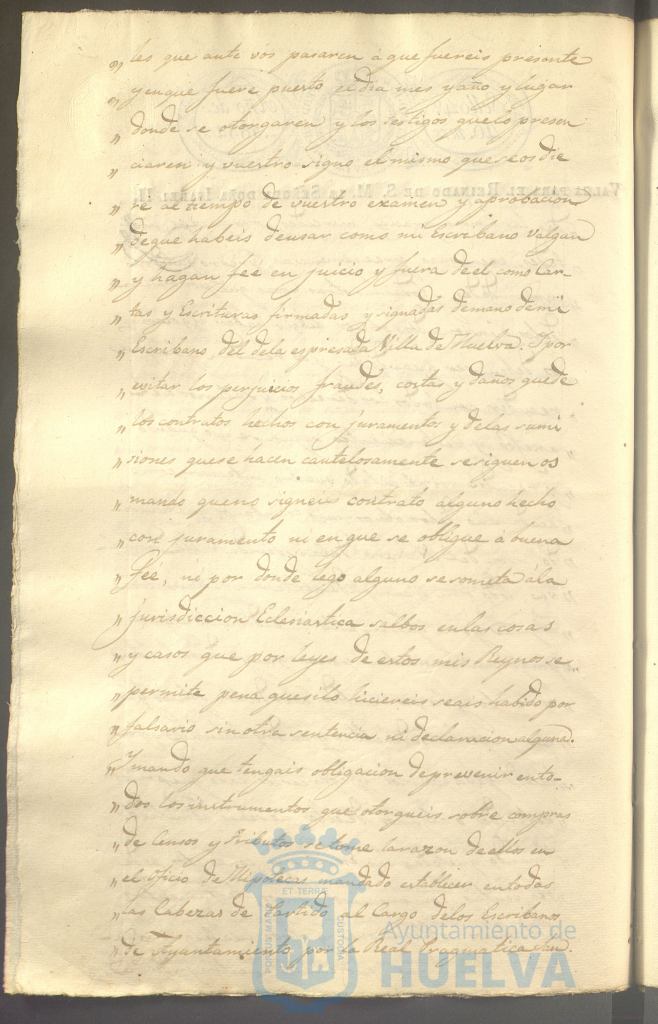 „ les que ante vos pasaren á que fuereis presente
„ y enque fuere puerto el dia mes y año y lugar
„ donde se otorgaren y los testigos que lo presen
„ ciaren y vuestro signo el mismo que se os die
„ re al tiempo de vuestro examen y aprobacion
„ deque habeis deusar como mi Escribano valgan
„ y hagan fee en juicio y fuera de el como Car-
„ tas y Escrituras firmadas y signadas demano demi
„ Escribano del dela espresada Villa de Huelva. Y por
„ evitar los perjuicios fraudes, costas y daños quede
„ los contratos hechos con juramentos y delas sumi
„ siones quese hacen cautelosamente sesiguen os
„ mando queno signeis contrato alguno hecho
„ con juramento ni en que se obligue á buena
„ Fée, ni por donde lego alguno se someta ála
„ jurisdiccion Eclesiastica salbos enlas cosas
„ y casos que por leyes de estos mis Reynos se
„ permite pena quesilo hiciereis seais habido por
„ falsario sin otra sentencia ni declaracion alguna.
„ Y mando que tengais obligacion deprevenir ento-
„ dos los instrumentos que otorgueis sobre compras
„ de Censos y tributos se tome larazon de ellos en
„ el Oficio de Hipotecas mandado establecer entodas
„ las Cabezas de Partido al Cargo delos Escribanos
„ de Ayuntamiento por la Real Pragmatica San
VALGA PARA EL REINADO DE S. M. LA SEÑORA DOÑA ISABEL II.
PORTUS MARIS ET TERRAE CUSTODIA
Ayuntamiento de
HUELVA